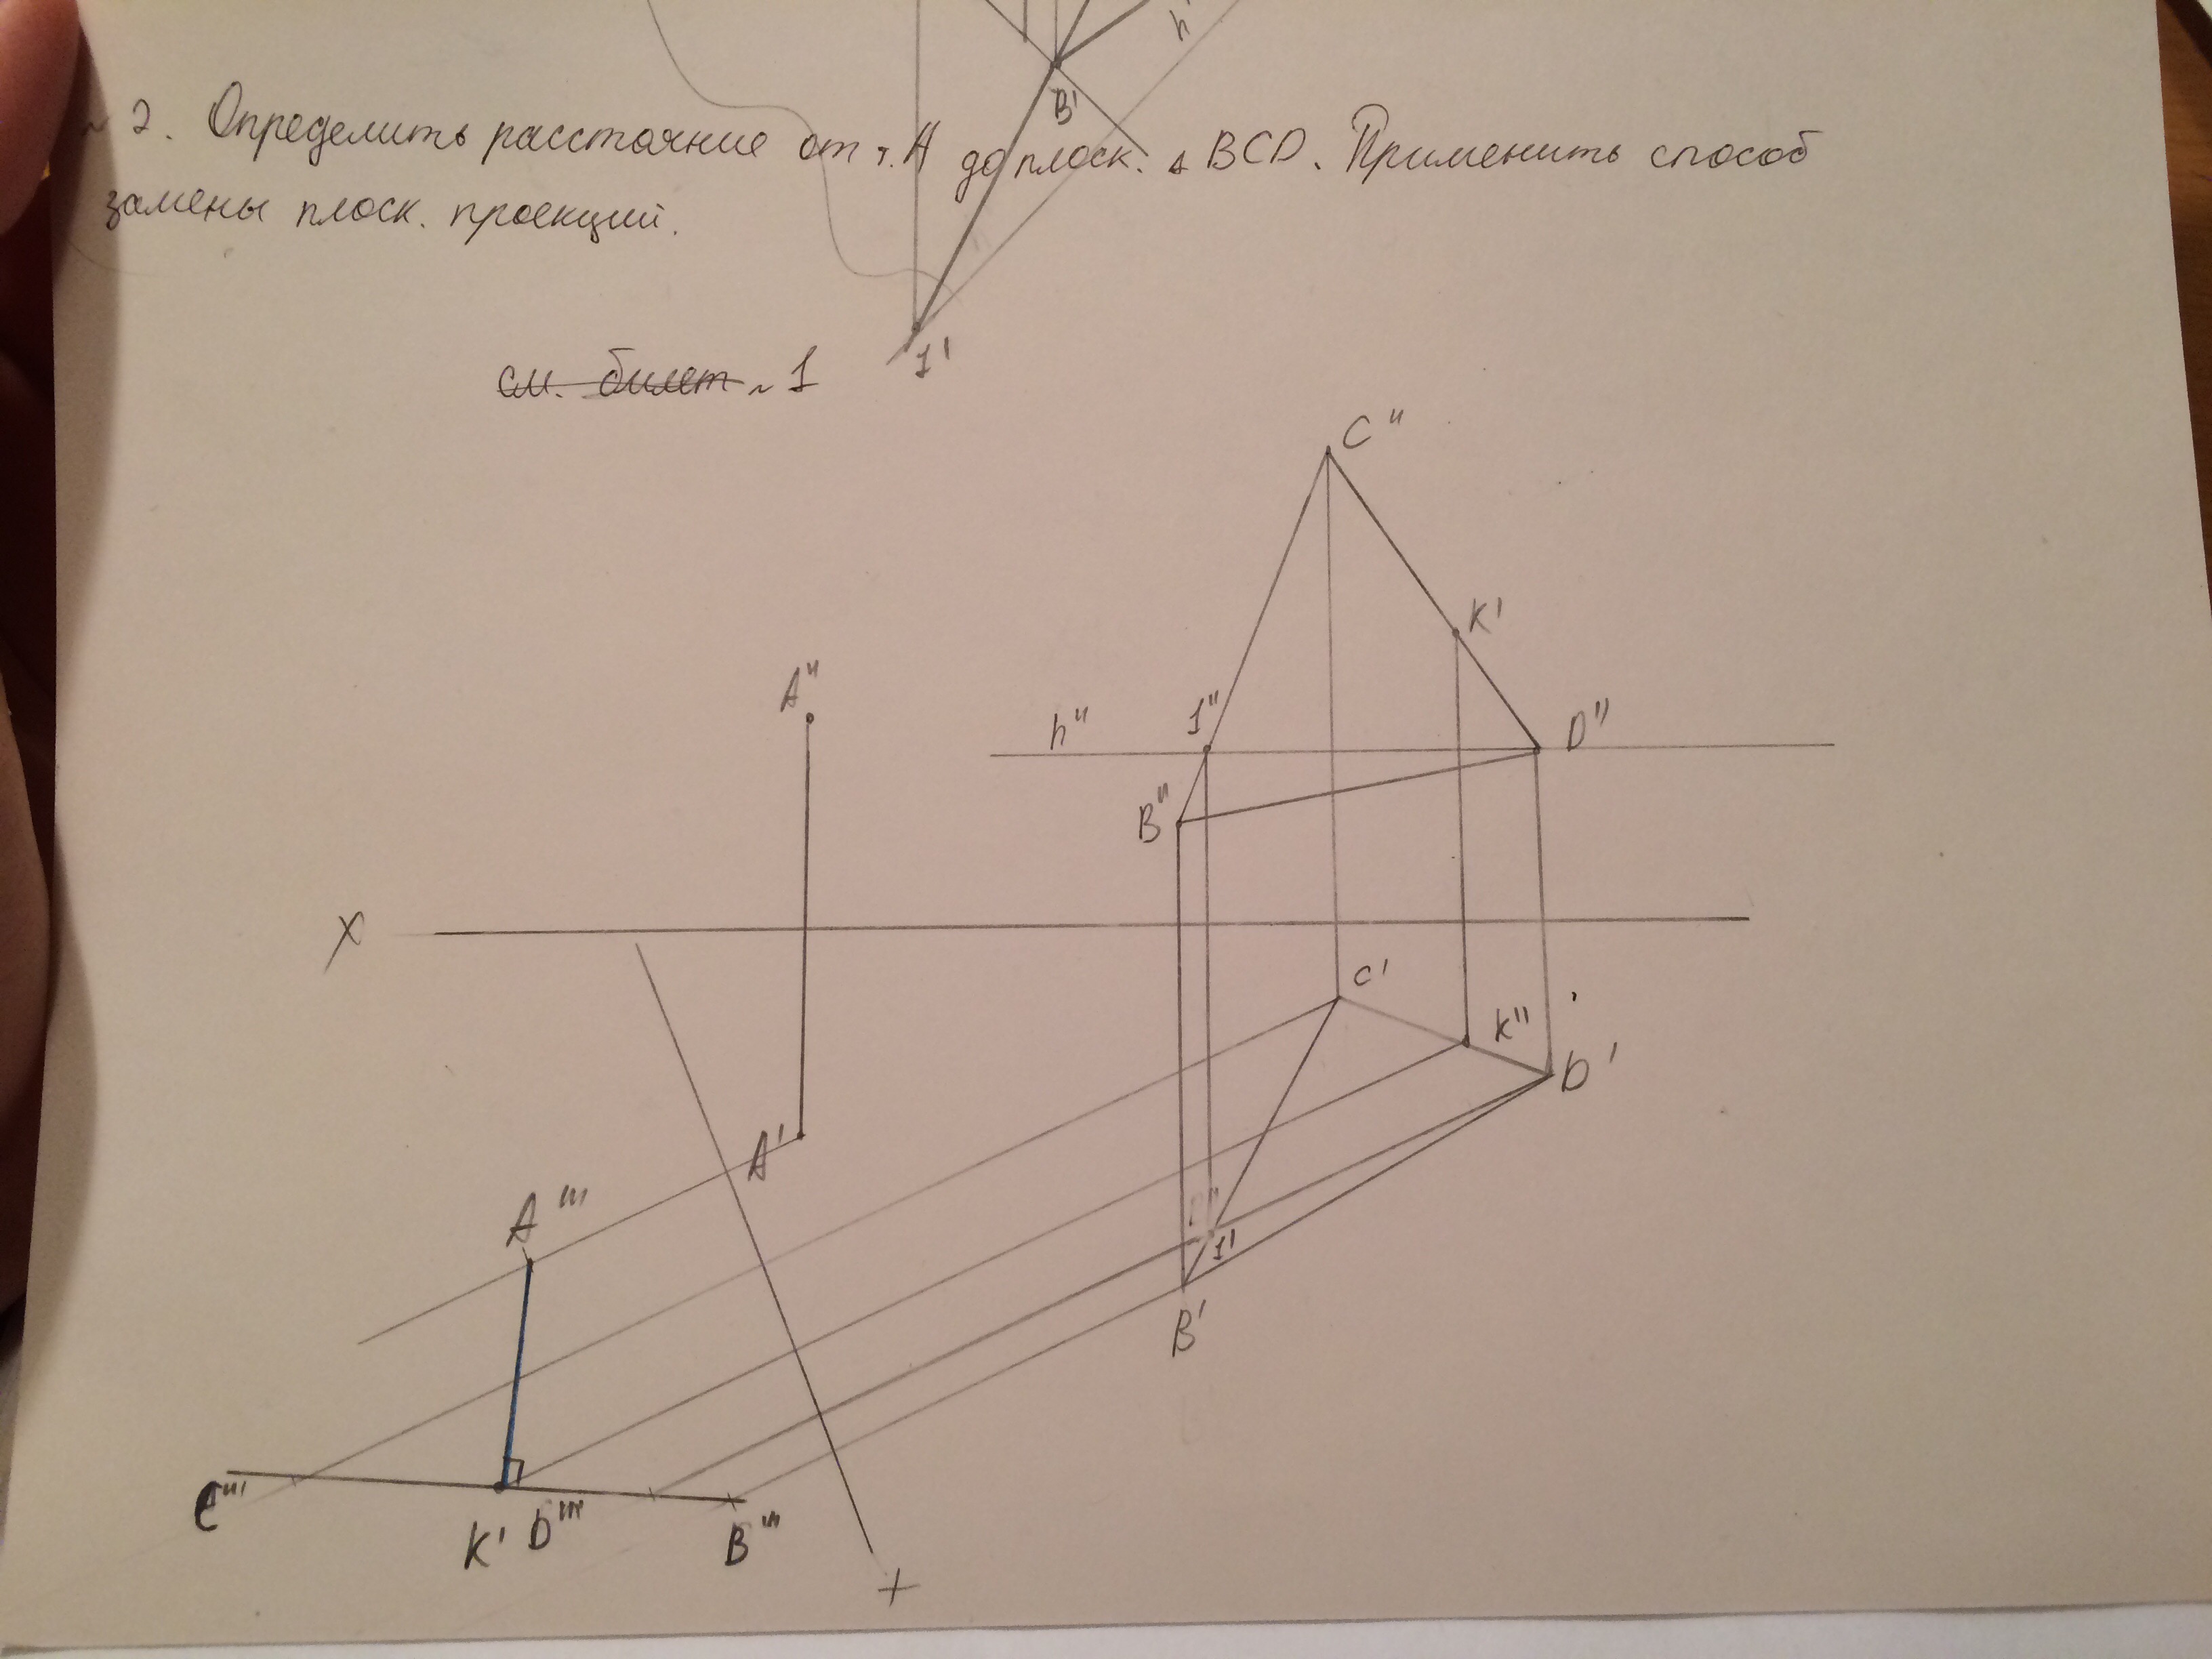 h'
B'
~ 2. Определить расстояние от т. A до плоск. △ BCD. Применить способ
замены плоск. проекций.
1'
см. билет ~ 1
C"
K'
A"
h" 1" D"
B"
X
C'
K"
D'
A'
A'''
1'
B'
C'''
K' D''' B'''